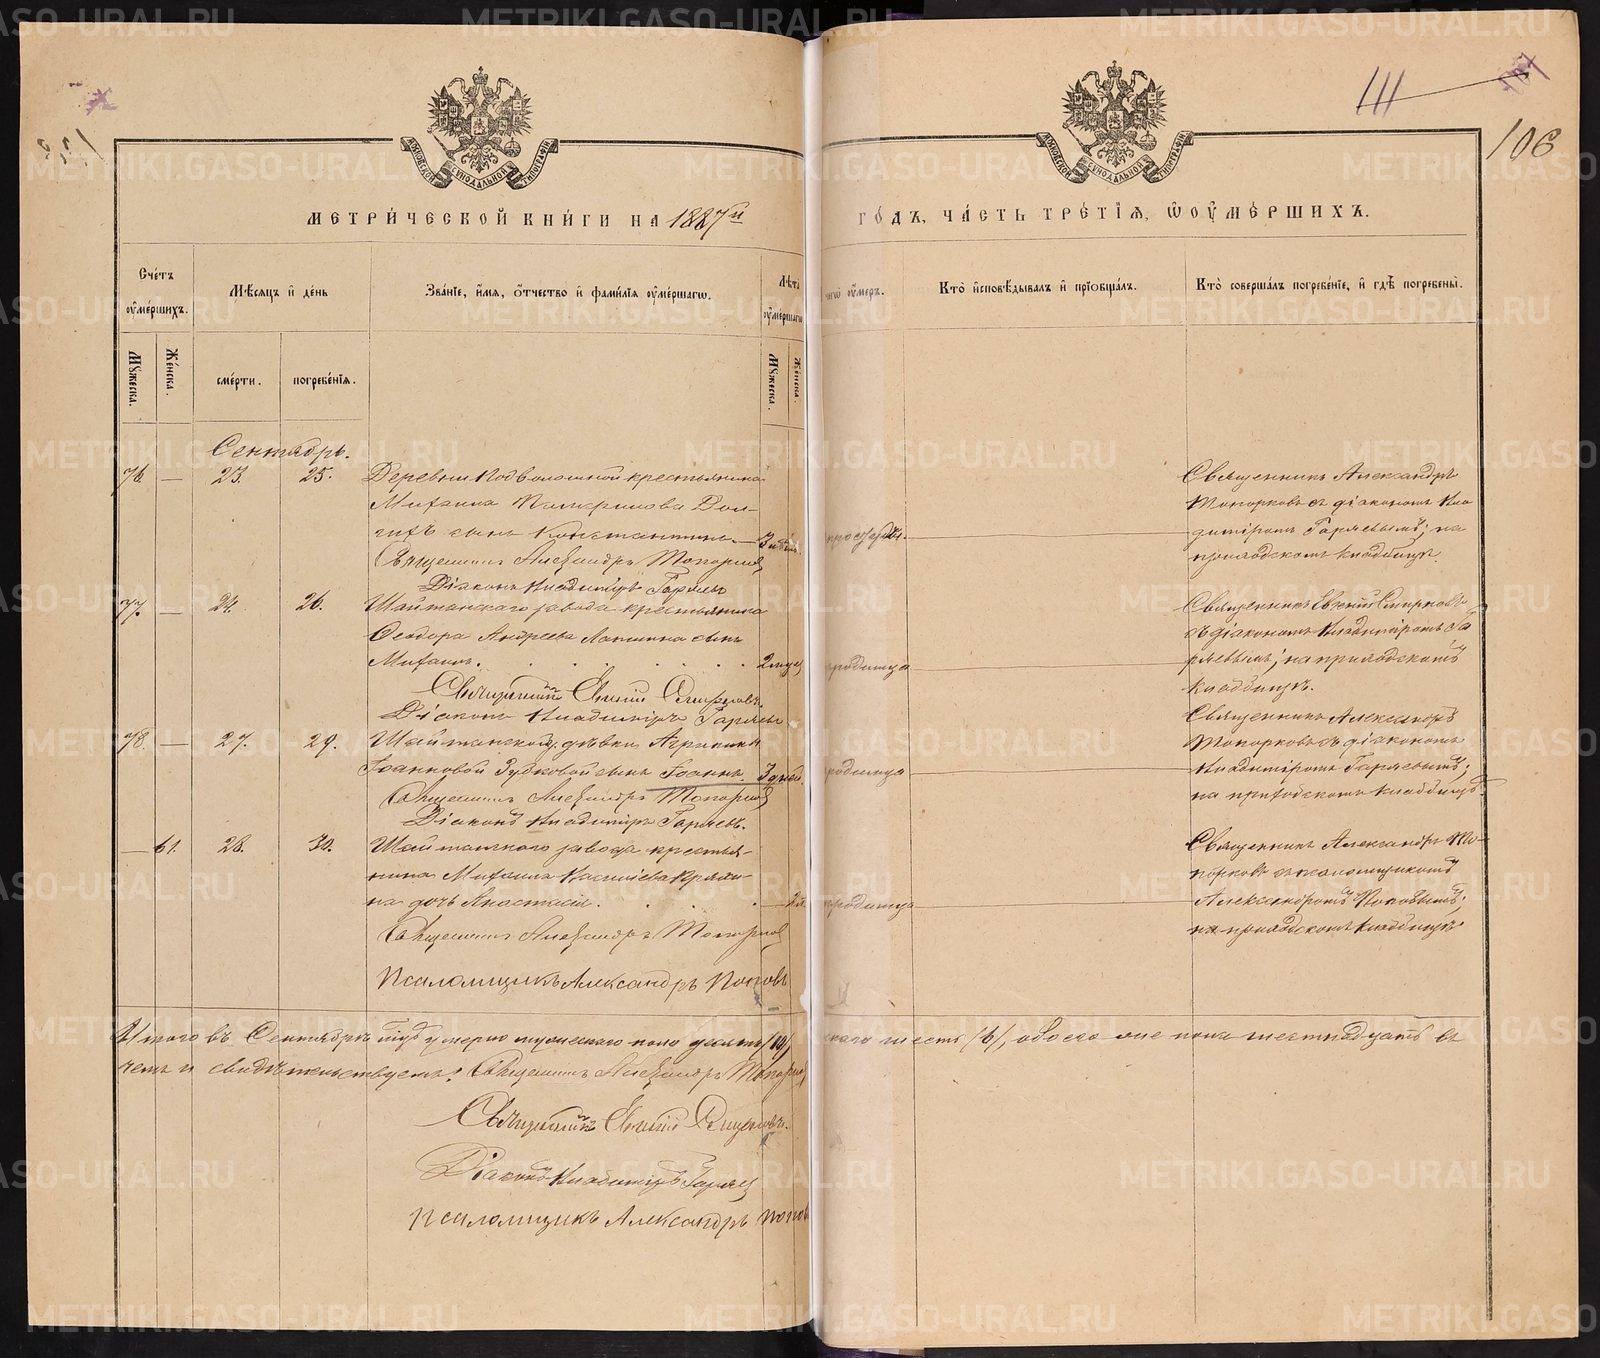 111
106
МЕТРИ́ЧЕСКОЙ КНИ́ГИ НА 1887й
ГО́ДЪ, ЧА́СТЬ ТРЕ́ТІЯ, Ѡ ОУ҆МЕ́РШИХЪ.
МОСКОВСКОЙ СѴНОДАЛЬНОЙ ТИПОГРАФІИ
МОСКОВСКОЙ СѴНОДАЛЬНОЙ ТИПОГРАФІИ
Сче́тъ оу҆ме́ршихъ.
Мѣ́сяцъ и де́нь
Зва́ніе, и́мя, о́тчество и фами́лія оу҆ме́ршагѡ.
Лѣта оу҆ме́ршагѡ
чегѡ̀ оу҆́меръ.
Кто̀ и҆сповѣ́дывалъ и҆ прїѡбща́лъ.
Кто̀ соверша́лъ погребе́ніе, и҆ гдѣ̀ погребены̀.
Мꙋ́жеска.
Же́нска.
сме́рти.
погребе́нїя.
Мꙋ́жеска.
Же́нска.
Сентябрь.
76. — 23. 25. Деревни Подволошной крестьянина
Михаила
сынъ Константинъ. — 3
Священникъ Александръ Топорковъ
Діаконъ Владиміръ Гаряевъ
простуды.
Священникъ Александръ
Топорковъ съ діакономъ Вла
диміромъ Гаряевымъ; на
приходскомъ кладбищѣ.
77. — 24. 26. Шайтанскаго завода крестьянина
Ѳеодора Андреева Лапшина сынъ
Михаилъ. 2
Священникъ Евгеній Смирновъ.
Діаконъ Владиміръ Гаряевъ
родимца
Священникъ Евгеній Смирновъ
съ діакономъ Владиміромъ Га
ряевымъ; на приходскомъ
кладбищѣ.
78. — 27. 29. Шайтанской дѣвки Агрипины
Іоанновой Зубковой сынъ Іоаннъ. 3 дней.
Священникъ Александръ Топорковъ
Діаконъ Владиміръ Гаряевъ.
родимца
Священникъ Александръ
Топорковъ съ діакономъ
Владиміромъ Гаряевымъ;
на приходскомъ кладбищѣ.
— 61. 28. 30. Шайтанскаго завода крестья-
нина Михаила Васильева
на дочь Анастасія. —
Священникъ Александръ Топорковъ
Псаломщикъ Александръ Поповъ
родимца
Священникъ Александръ То-
порковъ съ псаломщикомъ
Александромъ Поповымъ;
на приходскомъ кладбищѣ.
Итого въ Сентябрѣ умерло мужескаго пола десять /10/, женскаго шесть /6/, обоего же пола шестнадцать въ
чемъ и свидѣтельствуемъ: Священникъ Александръ Топорковъ
Священникъ Евгеній Смирновъ.
Діаконъ Владиміръ Гаряевъ
Псаломщикъ Александръ Поповъ
METRIKI.GASO-URAL.RU